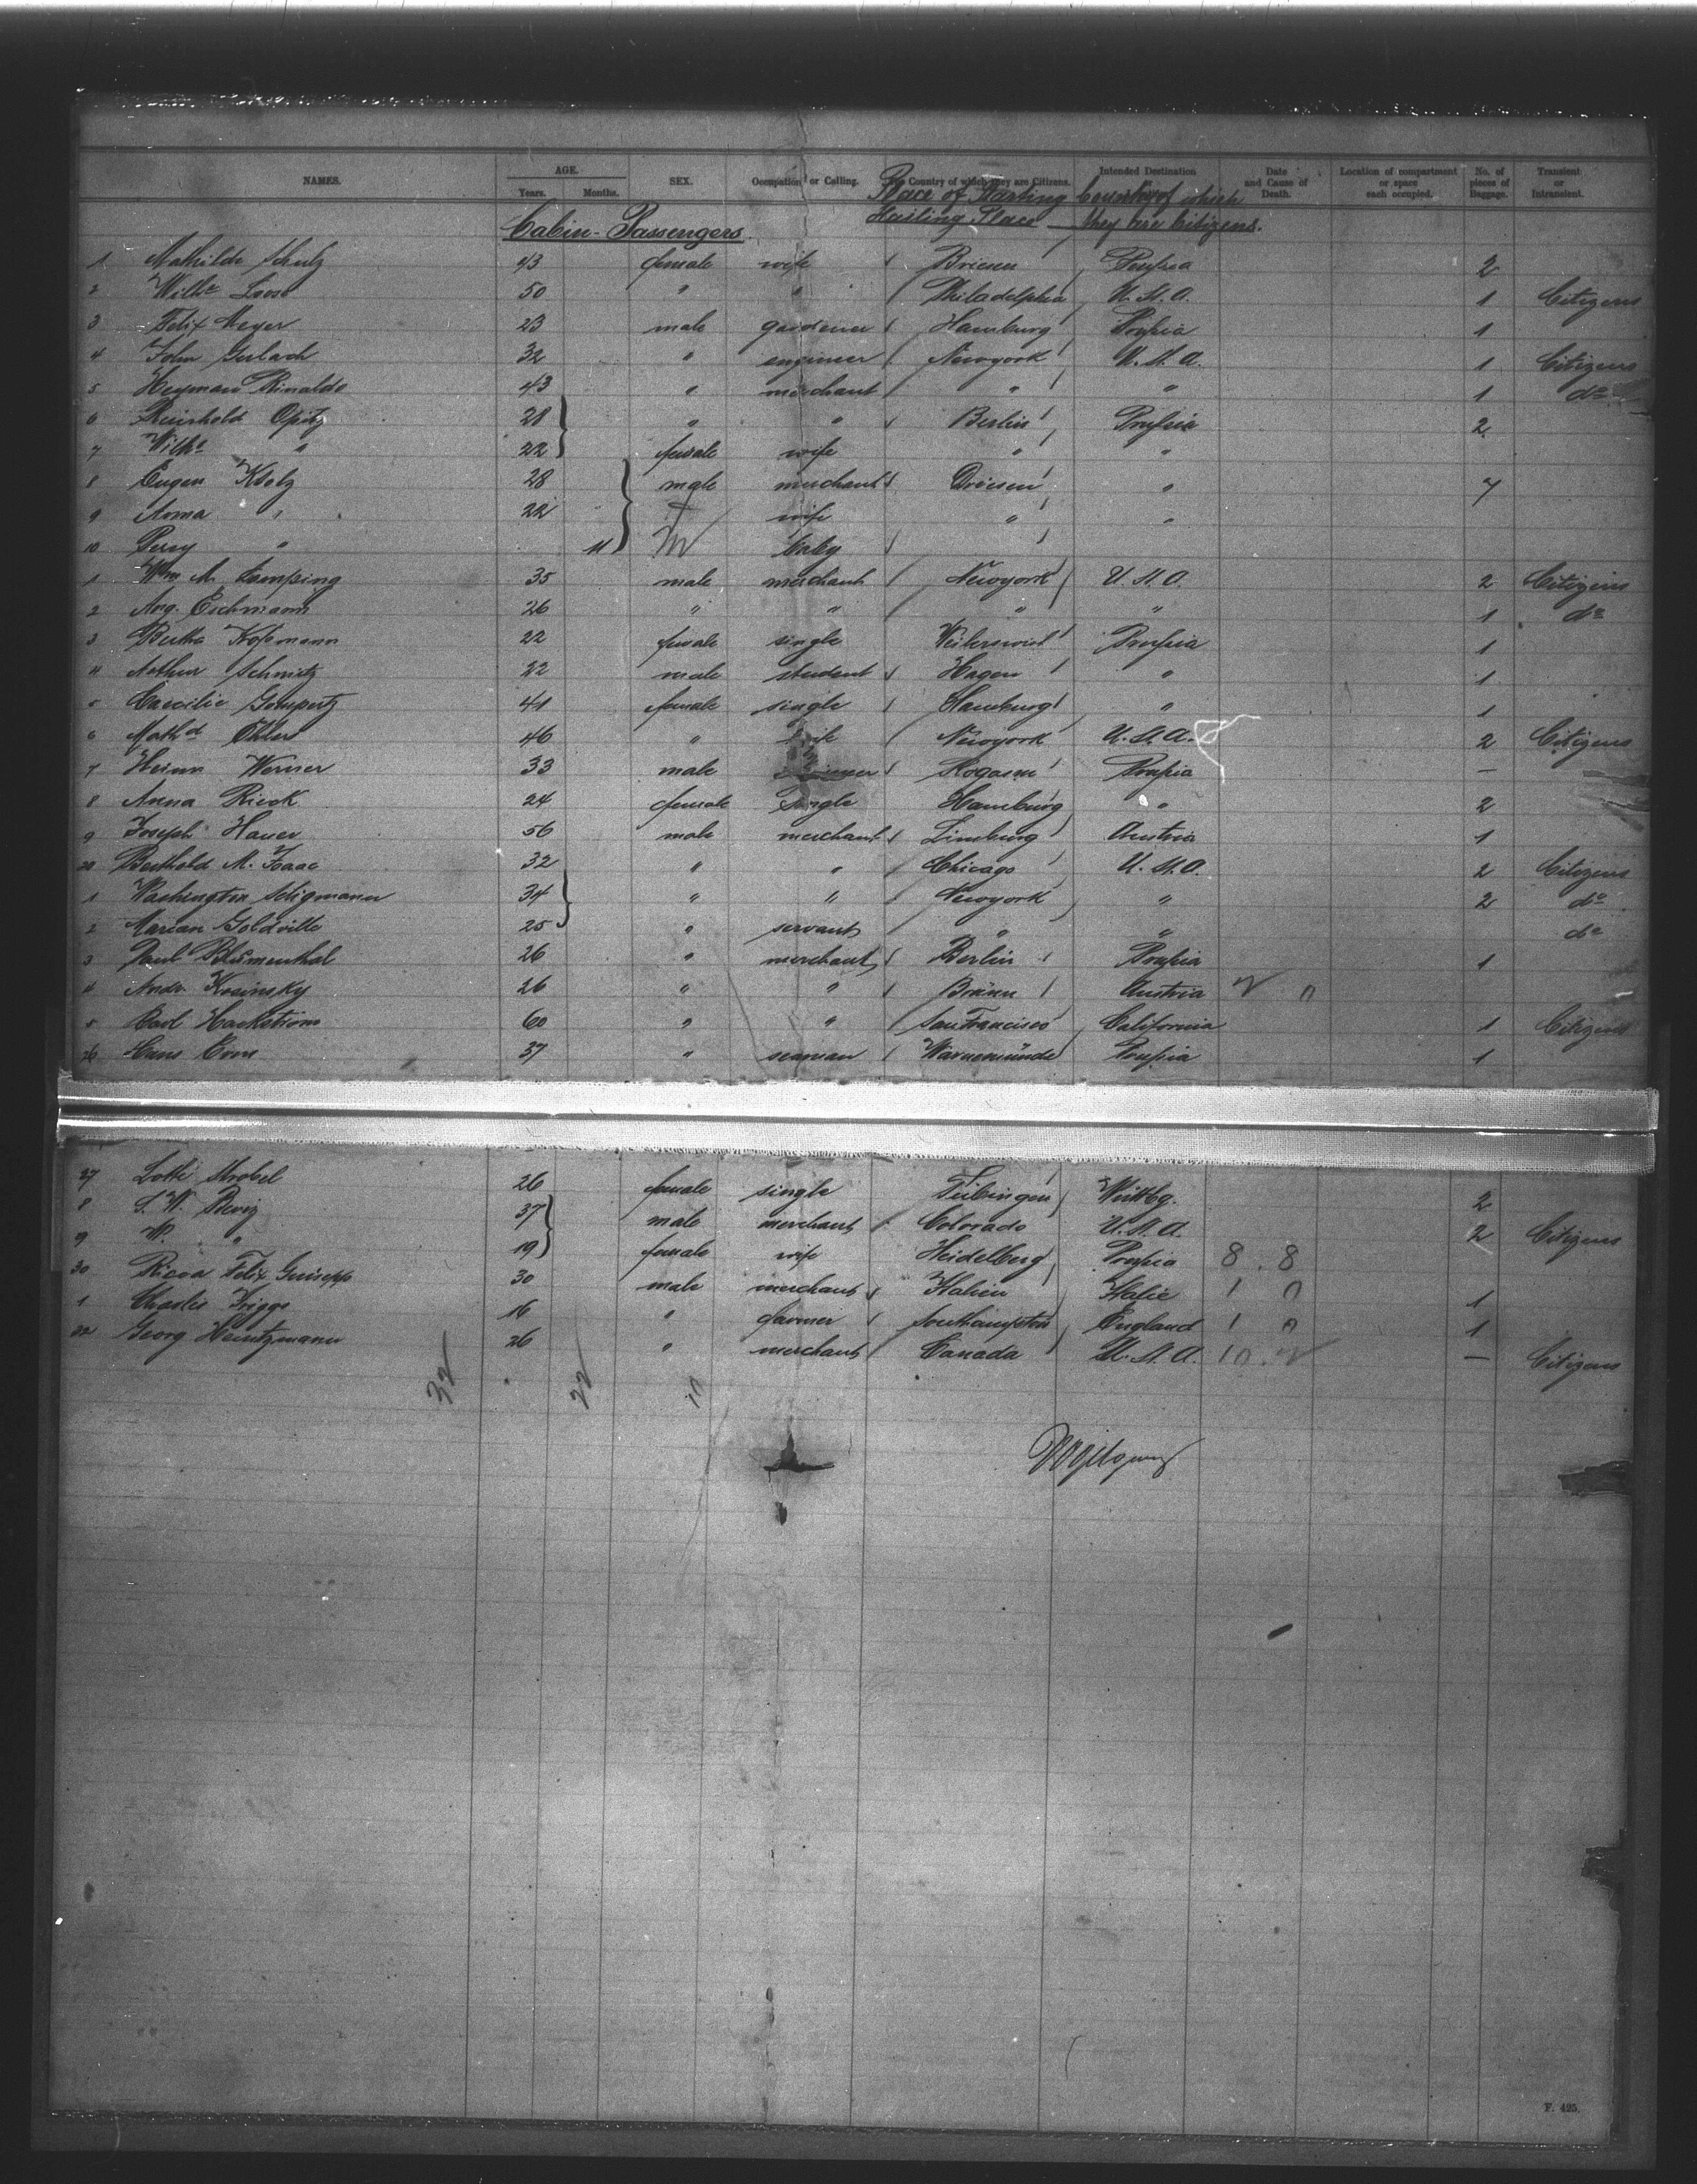 NAMES. AGE. SEX. Occupation or Calling. The Country of which they are Citizens. Intended Destination or Date and Cause of Death. Location of compartment or space each occupied. No. of pieces of Baggage. Transient or Intransient.
Years. Months. Place of Starting Country of which
Cabin-Passengers Hailing Place they are Citizens.
1 Mathilde Schulz 43 female wife Briesen Prussia 2
2 Wilh. 50 " " Philadelphia U.S.A. 1 Citizens
3 Felix Meyer 23 male gardener Hamburg Prussia 1
4 John Gerlach 32 " engineer Newyork U.S.A. 1 Citizens
5 Heyman Rinaldo 43 " merchant " " 1 do
6 Reinhold Opitz 28 " " Berlin Prussia 2
7 Wilhe " 22 female wife " "
8 Eugen 28 male merchant Driesen " 7
9 Anna " 22 wife " "
10 Percy " 11 m baby
1 Wm M. 35 male merchant Newyork U.S.A. 2 Citizens
2 Aug. Eschmann 26 " " " " 1 do
3 Bertha 22 female single Prussia 1
4 Arthur Schmitz 22 male student Hagen " 1
5 Caecilie Gompertz 41 female single Hamburg " 1
6 Mathd 46 " wife Newyork U.S.A. 2 Citizens
7 Heinr Werner 33 male Rogasen Prussia —
8 Anna Rieck 24 female single Hamburg " 2
9 Joseph Hauer 56 male merchant Austria 1
20 Berthold M. Isaac 32 " " Chicago U.S.A. 2 Citizens
1 Washington Seligmann 34 " " Newyork " 2 do
2 Marian Goldville 25 " servant " " do
3 Paul Blumenthal 26 " merchant Berlin Prussia 1
4 Andr. 26 " " Brünn Austria
5 Carl Hackström 60 " " San Francisco California 1 Citizens
26 Hans 37 " seaman Warnemünde Prussia 1
27 Lotte Strobel 26 female single Tübingen Württbg. 2
8 S. W. 37 male merchant Colorado U.S.A. 2 Citizens
9 W. " 19 female wife Heidelberg Prussia 8 . 8
30 Felix Guiseppe 30 male merchant Italien Italie 1 0 1
1 Charles Griggs 16 " farmer Southampton England 1 0 1
32 Georg Heintzmann 26 " merchant Canada U.S.A. 10 — Citizens
32 22
F. 425.